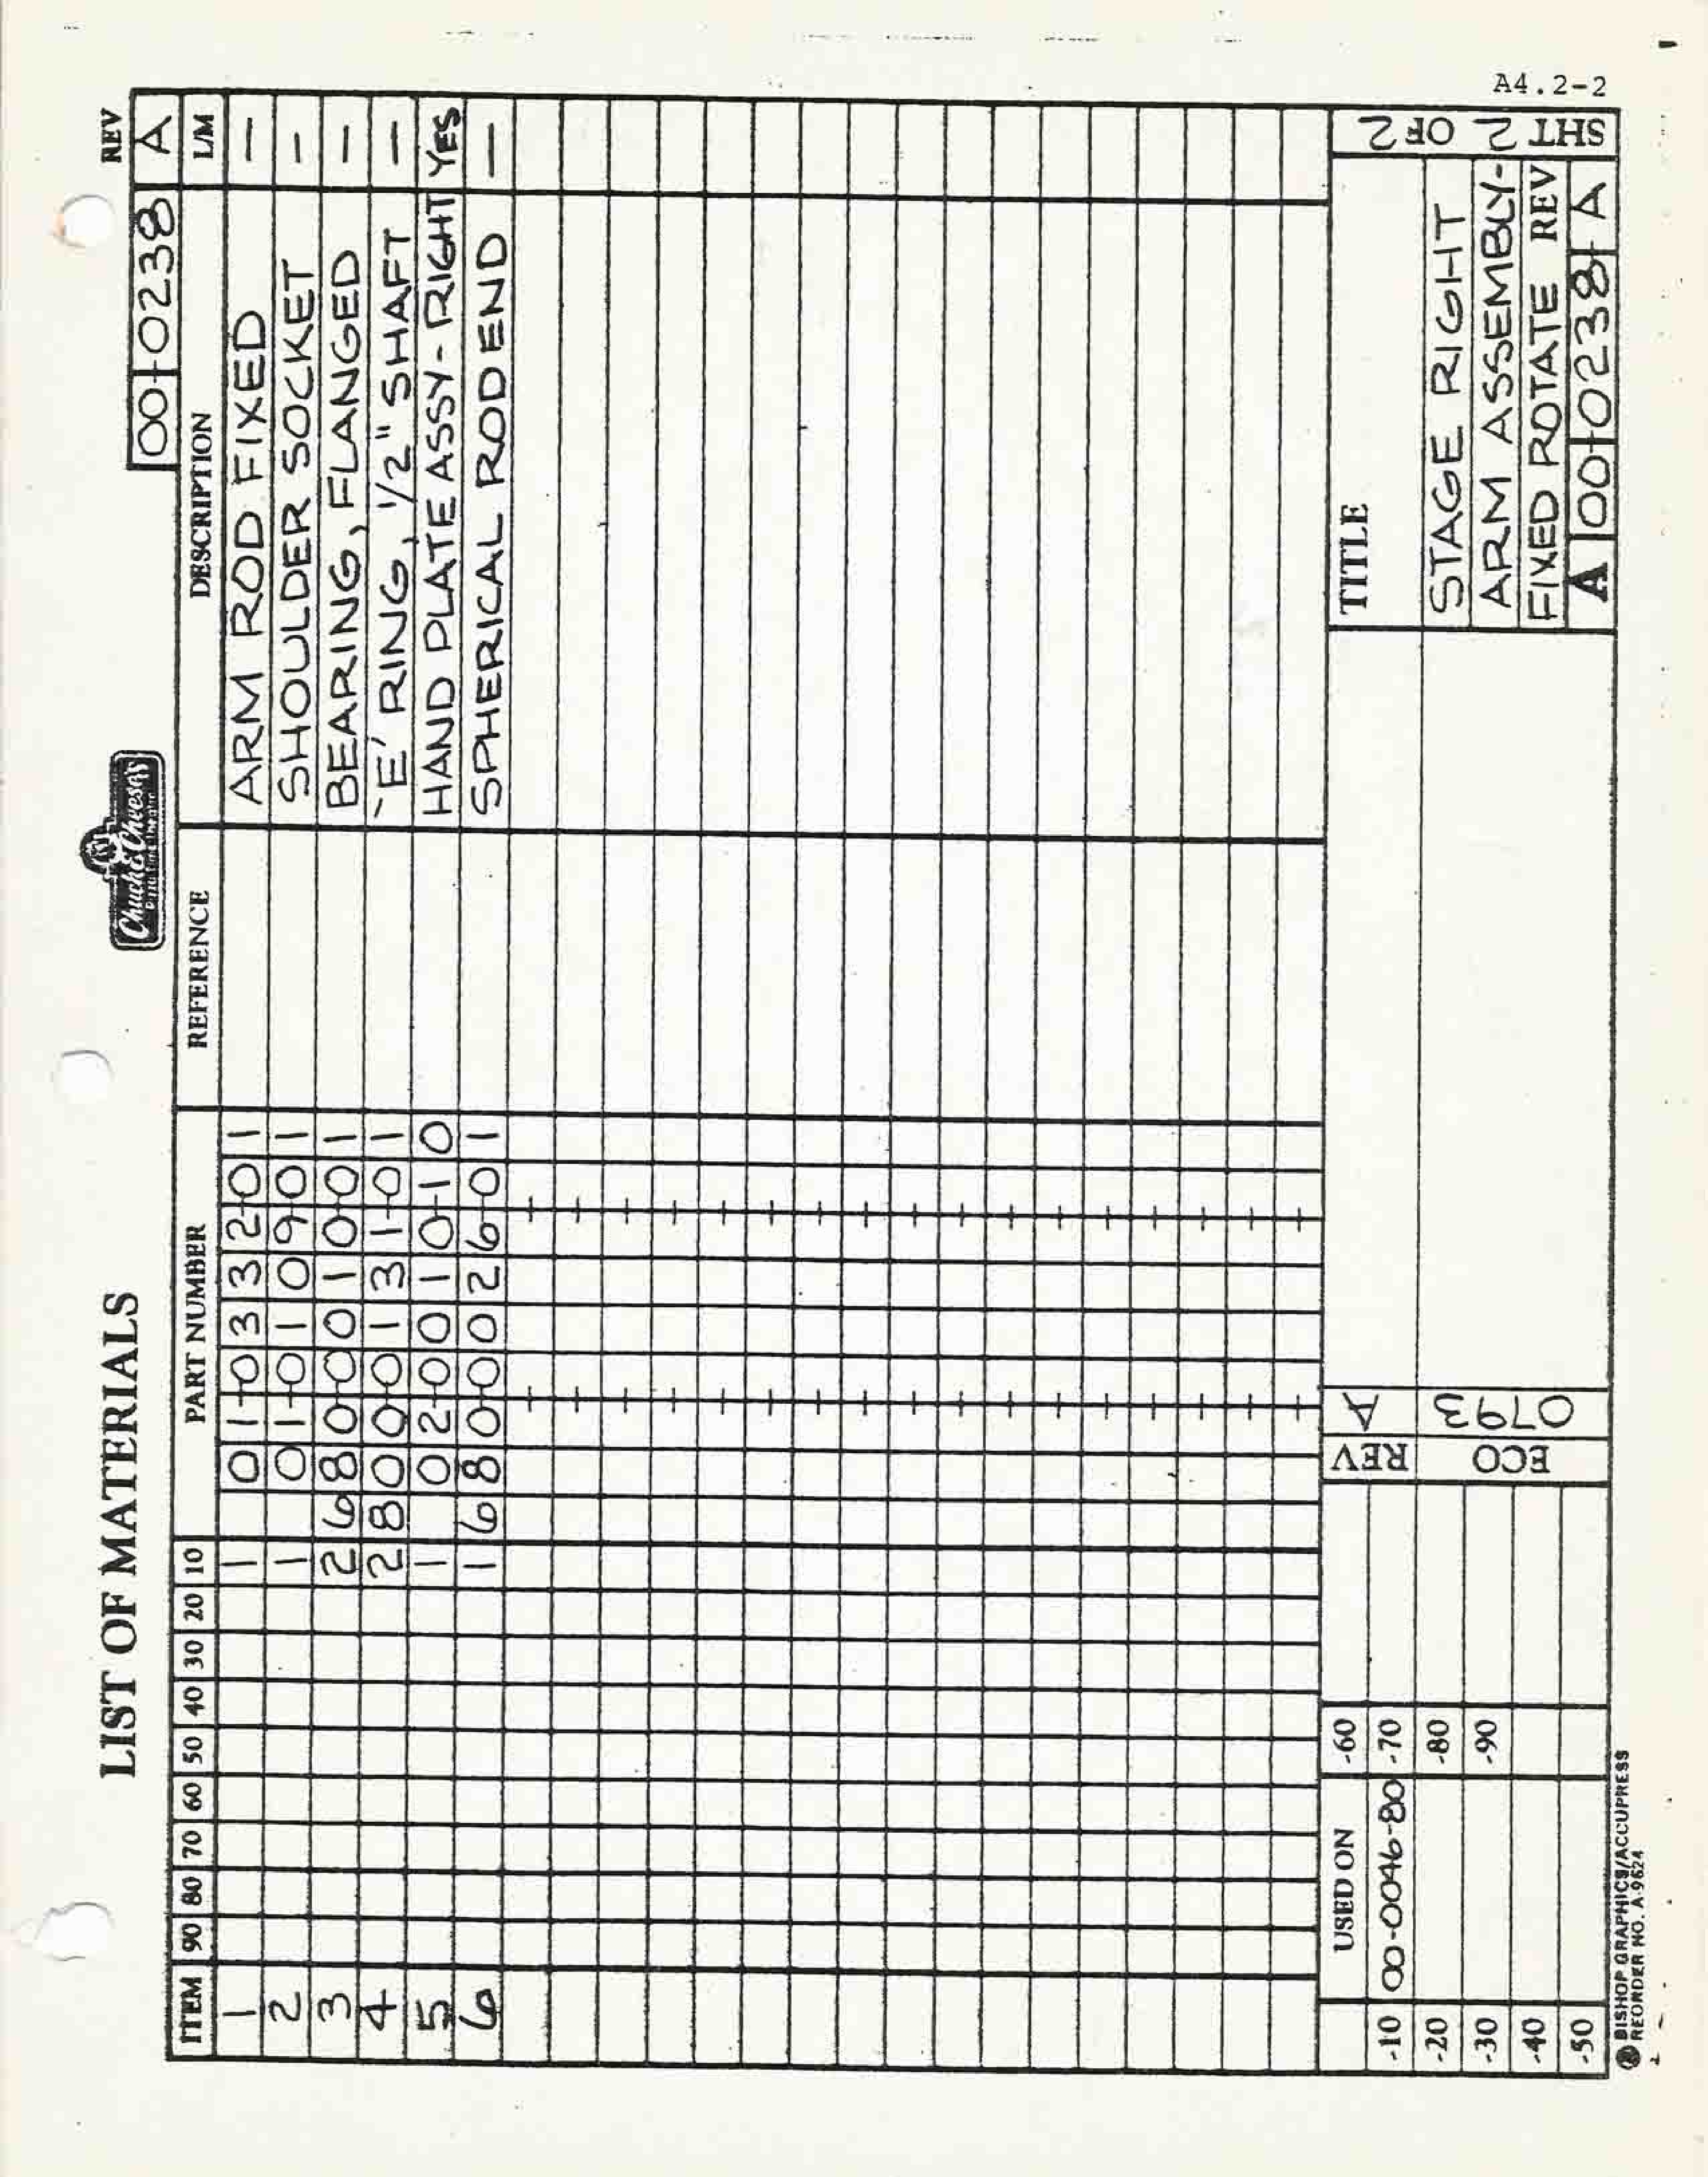 A4.2-2
LIST OF MATERIALS
Chuck E. Cheese's
REV
00-0238 A
ITEM 90 80 70 60 50 40 30 20 10 PART NUMBER REFERENCE DESCRIPTION L/M
1 1 01-0332-01 ARM ROD FIXED —
2 1 01-0109-01 SHOULDER SOCKET —
3 2 680-0010-01 BEARING, FLANGED —
4 2 800-0131-01 'E' RING, 1/2" SHAFT —
5 1 02-0010-10 HAND PLATE ASSY-RIGHT YES
6 1 680-0026-01 SPHERICAL ROD END —
USED ON -60
-10 00-0046-80 -70
-20 -80
-30 -90
-40
-50
REV A
ECO 0793
TITLE
STAGE RIGHT
ARM ASSEMBLY-
FIXED ROTATE REV
A 00-0238 A
SHT 2 OF 2
BISHOP GRAPHICS/ACCUPRESS
REORDER NO. A-9624